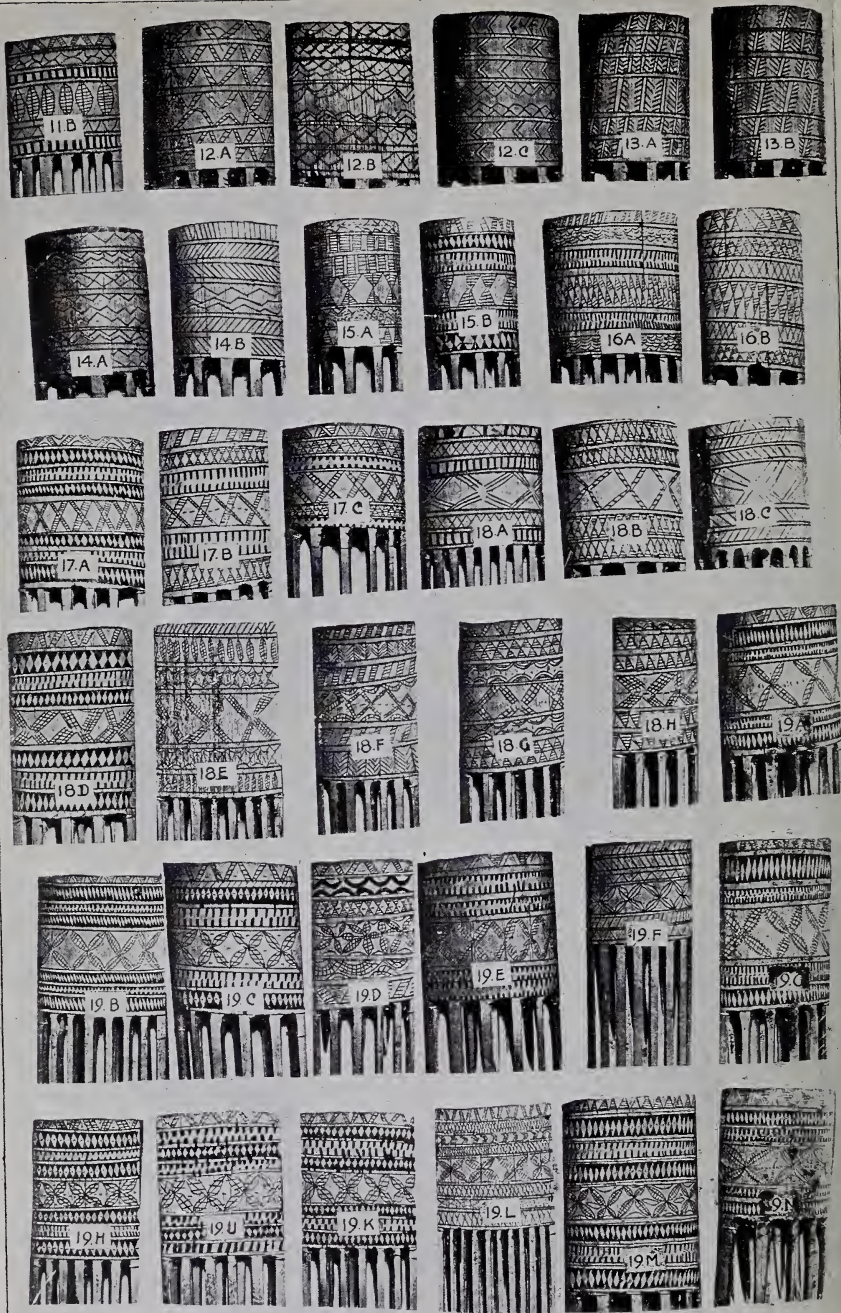 11.B 12.A 12.B 12.C 13.A 13.B
14.A 14.B 15.A 15.B 16A 16.B
17.A 17.B 17.C 18.A 18.B 18.C
18.D 18.E 18.F 18.G 18.H 19.A
19.B 19.C 19.D 19.E 19.F 19.G
19.H 19.J 19.K 19.L 19.M. 19.N